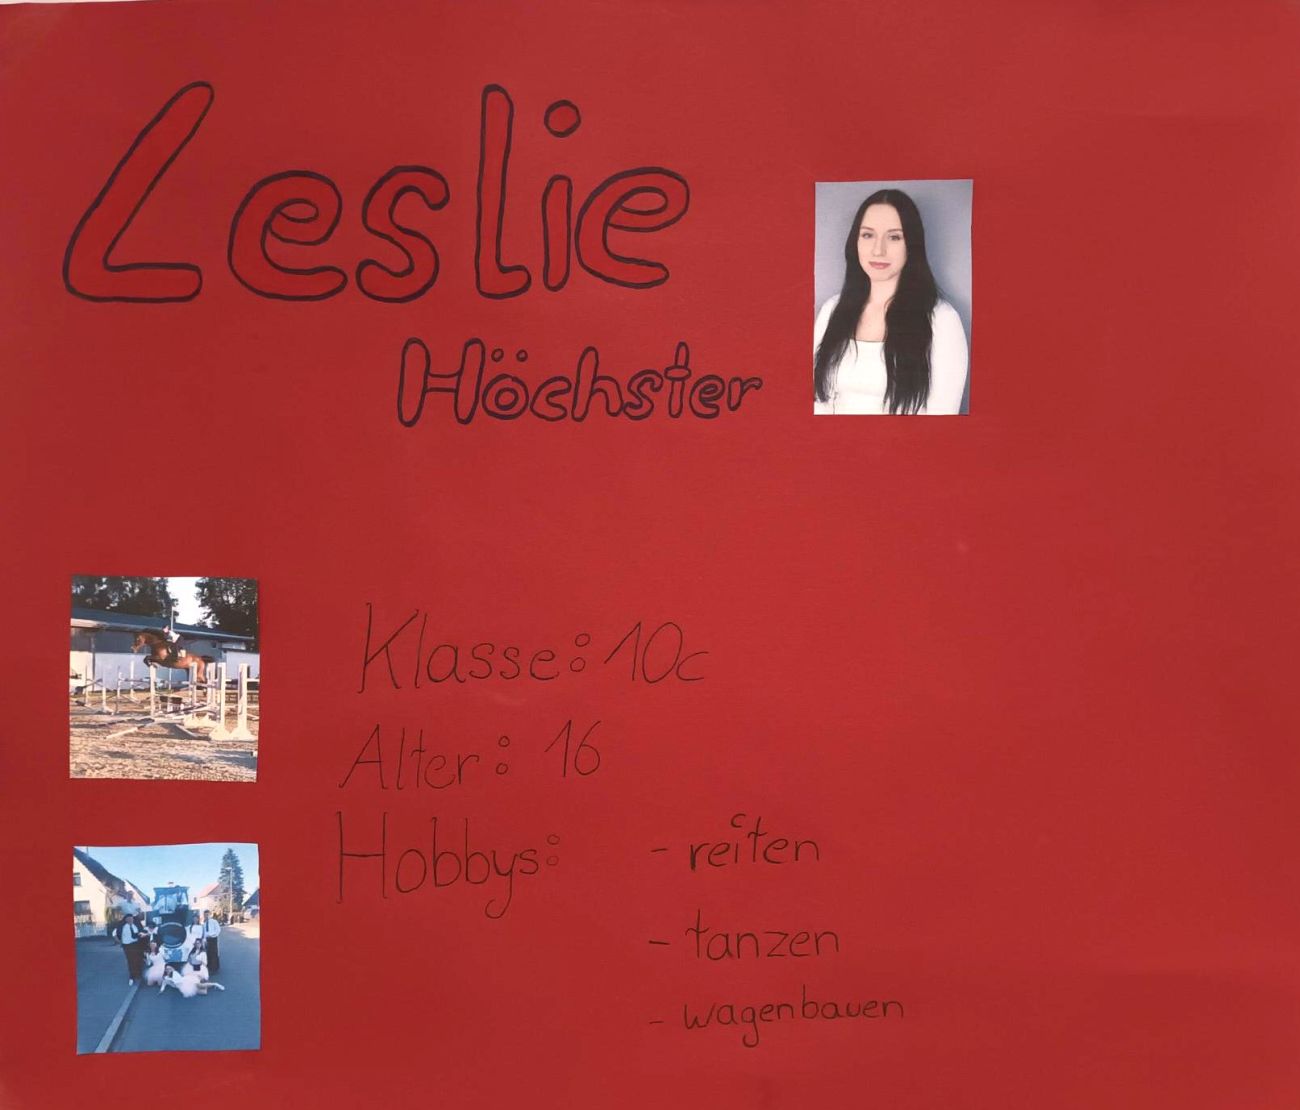 Leslie
Höchster
Klasse: 10c
Alter: 16
Hobbys: - reiten
- tanzen
- wagenbauen